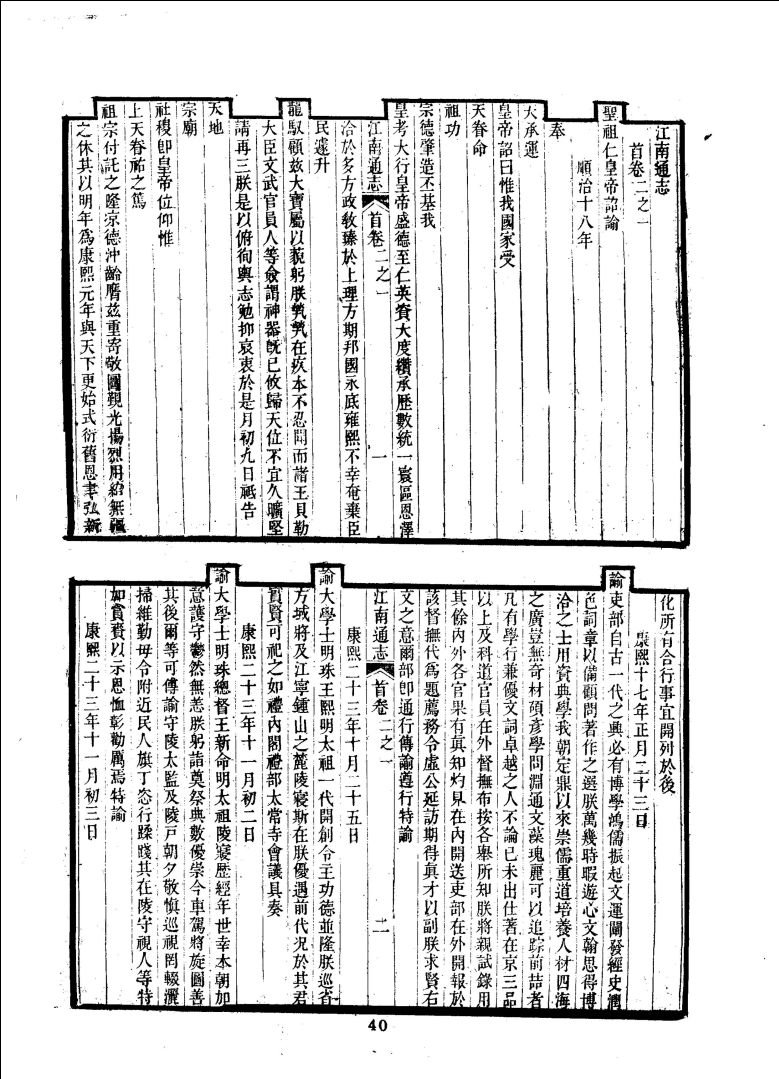 江南通志
首卷二之一
聖祖仁皇帝詔諭
順治十八年
奉
天承運
皇帝詔曰惟我國家受
天眷命
祖功
宗德肇造丕基我
皇考大行皇帝盛德至仁英資大度纘承歷數統一寰區恩澤
江南通志 首卷二之一 一
洽於多方政敎臻於上理方期邦國永底雍熙不幸奄棄臣
民遽升
龍馭顧茲大寶屬以藐躬朕煢煢在疚本不忍聞而諸王貝勒
大臣文武官員人等僉謂神器旣已攸歸天位不宜久曠堅
請再三朕是以俯徇輿志勉抑哀衷於是月初九日祇告
天地
宗廟
社稷卽皇帝位仰惟
上天眷祐之篤
祖宗付託之隆涼德沖齡膺茲重寄敬圖覲光揚烈用紹無疆
之休其以明年爲康熙元年與天下更始式衍舊恩聿弘新
化所有合行事宜開列於後
康熙十七年正月二十三日
諭吏部自古一代之興必有博學鴻儒振起文運闡發經史潤
色詞章以備顧問著作之選朕萬幾時暇遊心文翰思得博
洽之士用資典學我朝定鼎以來崇儒重道培養人材四海
之廣豈無奇材碩彥學問淵通文藻瑰麗可以追踪前喆者
凡有學行兼優文詞卓越之人不論已未出仕著在京三品
以上及科道官員在外督撫布按各舉所知朕將親試錄用
其餘內外各官果有眞知灼見在內開送吏部在外開報於
該督撫代爲題薦務令虛公延訪期得眞才以副朕求賢右
文之意爾部卽通行傳諭遵行特諭
江南通志 首卷二之一 二
康熙二十三年十月二十五日
諭大學士明珠王熙明太祖一代開創令主功德並隆朕巡省
方域將及江寧鍾山之麓陵寢斯在朕優遇前代况於其君
實賢可祀之如禮內閣禮部太常寺會議具奏
康熙二十三年十一月初二日
諭大學士明珠總督王新命明太祖陵寢歷經年世幸本朝加
意護守鬱然無恙朕躬詣奠祭典數優崇今車駕將旋圖善
其後爾等可傳諭守陵太監及陵戸朝夕敬愼巡視罔輟灑
掃維勤毋令附近民人旗丁恣行蹂踐其在陵守視人等特
加賞賚以示恩恤彰勸厲焉特諭
康熙二十三年十一月初三日
40